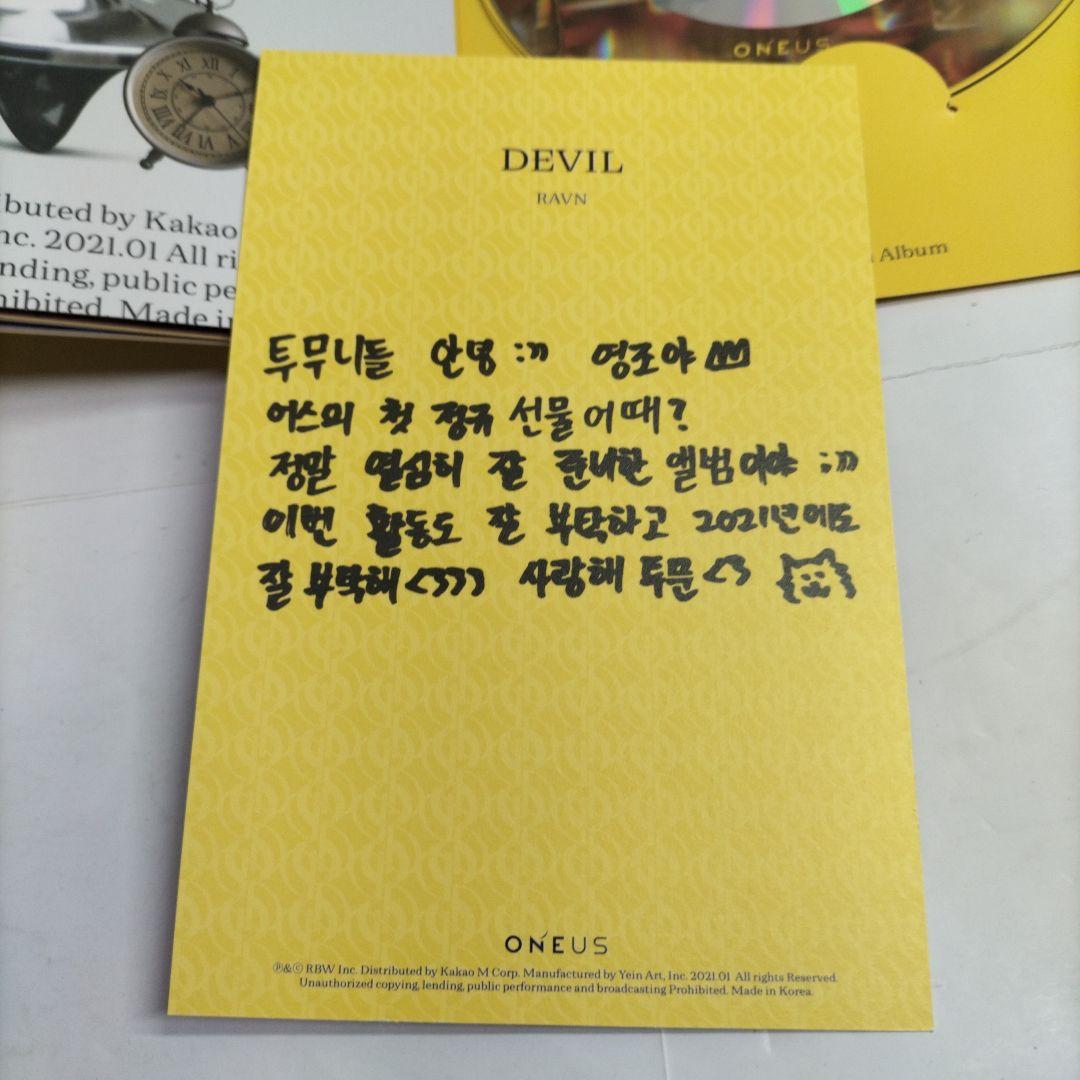 XII
XI
X
IX
VIII
VII
VI
V
ibuted by Kakao
nc. 2021.01 All ri
nding, public pe
hibited. Made in
ONEUS
Album
DEVIL
RAVN
투무니들 안녕 :)) 영조야
어스의 첫 정규 선물 어때?
정말 열심히 잘 준비한 앨범이야 :))
이번 활동도 잘 부탁하고 2021년에도
잘 부탁해 <333 사랑해 투문 <3
ONEUS
℗&© RBW Inc. Distributed by Kakao M Corp. Manufactured by Yein Art, Inc. 2021.01 All rights Reserved.
Unauthorized copying, lending, public performance and broadcasting Prohibited. Made in Korea.